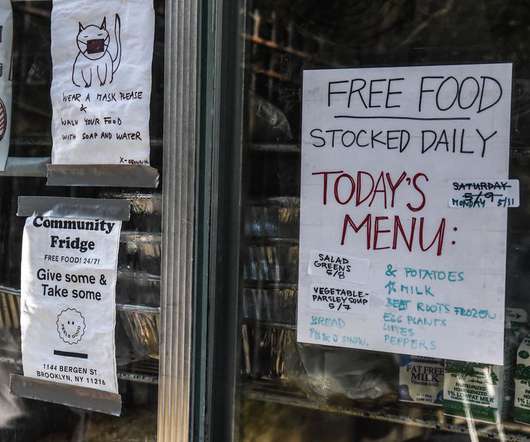 WEAR A MASK PLEASE
&
WASH YOUR FOOD
WITH SOAP AND WATER
Community
Fridge
FREE FOOD! 24/7!
Give some &
Take some
1144 BERGEN ST
BROOKLYN, NY 11216
FREE FOOD
STOCKED DAILY
TODAY'S
MENU:
SATURDAY
5/9
MONDAY 5/11
SALAD
GREENS
5/8
VEGETABLE-
PARSLEY SOUP
5/7
BREAD
& POTATOES
1% MILK
BEET ROOTS FROZEN
EGG PLANTS
LIMES
PEPPERS
FAT FREE
MILK